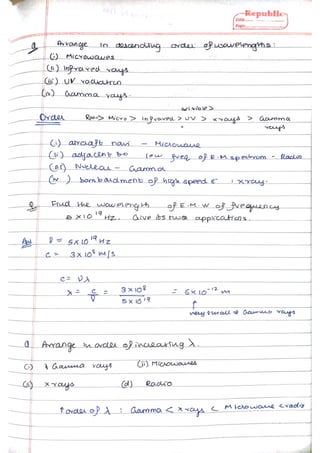 Republic
Date
Page
Q Arrange in descending order of wavelengths :
(i) Microwaves
(ii) Infrared rays
(iii) UV radiation
(iv) Gamma rays.
visible >
Order Radio > Micro > Infrared > UV > x rays > Gamma
rays
(i) aircraft navi - Microwave
(ii) adjacent to low freq of E.M spectrum - Radio
(iii) Nuclear - Gamma
(iv) bombardment of high speed e⁻ : x ray.
Q Find the wavelength of E.M. w of frequency
5 x 10¹⁹ Hz. Give its two applications.
Ans ν = 5x10¹⁹ Hz
c = 3x 10⁸ m/s
c = νλ
λ = c/ν = 3x10⁸ / 5x10¹⁹ = 6x10⁻¹² m
↑
very small ∴ Gamma rays
Q Arrange in order of increasing λ.
(i) Gamma rays (ii) Microwaves
x rays (d) Radio
↑ order of λ : Gamma < x rays < Microwave < radio